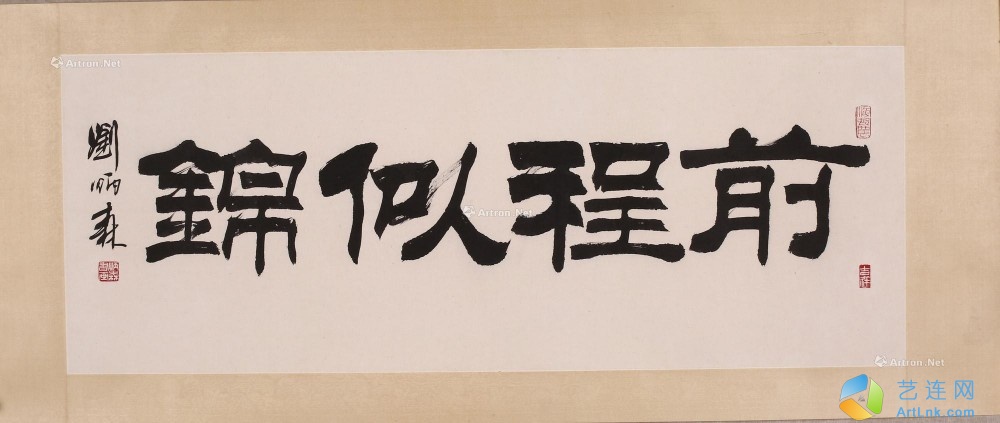 前程似錦
劉炳森
吉祥
Artron.Net
Artron.Net
Artron.Net
艺连网
ArtLnk.com